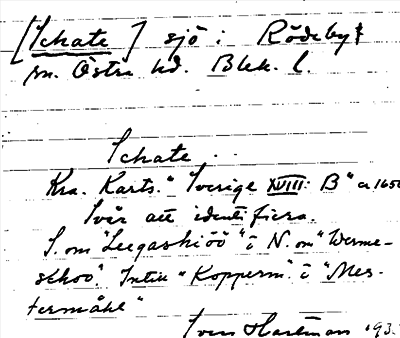 [Schate] sjö i Rödeby
sn. Östra hd. Blek. l.
Schate
Kra. Karts. "Sverige XVIII: B" ca 1650
Svår att identifiera.
S. om "Leegashiöö" i N. om "Werme-
schoo". Intill "Kopperm". i "Mes-
termåhl"
Sven Hartman 193